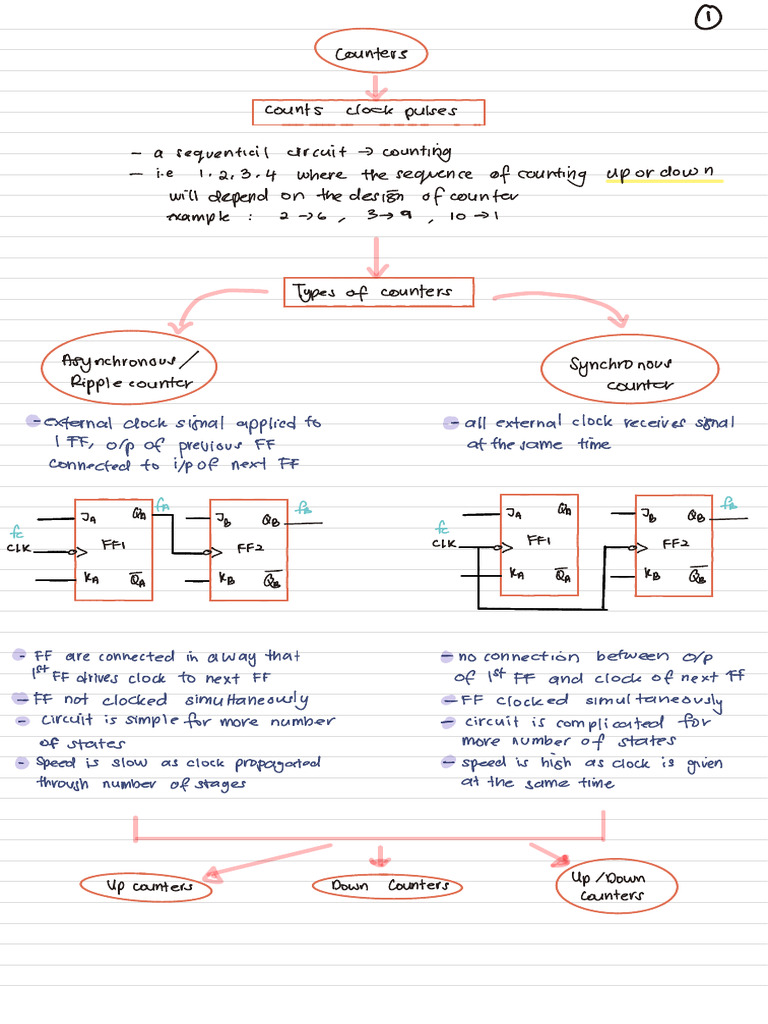 1
Counters
counts clock pulses
- a sequential circuit → counting
- i.e 1, 2, 3, 4 where the sequence of counting up or down
will depend on the design of counter
example : 2 → 6 , 3 → 9 , 10 → 1
Types of counters
Asynchronous/
Ripple counter
- external clock signal applied to
1 FF, o/p of previous FF
connected to i/p of next FF
fc
CLK
JA
QA
fA
FF1
KA
Q̅A
JB
QB
fB
FF2
KB
Q̅B
- FF are connected in a way that
1st FF drives clock to next FF
- FF not clocked simultaneously
- circuit is simple for more number
of states
- Speed is slow as clock propagated
through number of stages
Synchronous
counter
- all external clock receives signal
at the same time
fc
CLK
JA
QA
FF1
KA
Q̅A
JB
QB
fB
FF2
KB
Q̅B
- no connection between o/p
of 1st FF and clock of next FF
- FF clocked simultaneously
- circuit is complicated for
more number of states
- speed is high as clock is given
at the same time
Up counters
Down Counters
Up/Down
counters